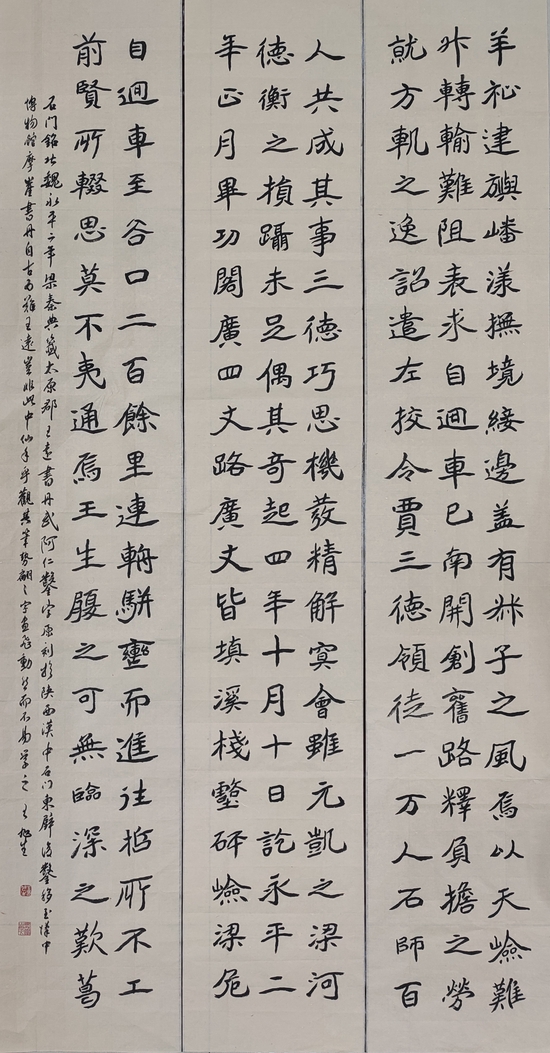 羊祉建旟嶓漾撫境綏邊盖有叔子之風焉以天嶮難
升轉輸難阻表求自迴車已南開創舊路釋負擔之勞
就方軌之逸詔遣左挍令賈三德領徒一万人石師百
人共成其事三德巧思機發精解冥會雖元凱之梁河
德衡之損躡未足偶其奇起四年十月十日訖永平二
年正月畢功閣廣四丈路廣丈皆填溪棧壑砰嶮梁危
自迴車至谷口二百餘里連輈駢轡而進往哲所不工
前賢所輟思莫不夷通焉王生履之可無臨深之歎葛
石门銘北魏永平二年梁秦典籤太原郡王遠書丹武阿仁鑿字原刻於陝西漢中石门東壁後鑿移至漢中
博物館摩崖書丹自古為難王遠豈非此中仙手乎觀其筆勢翩〻字畫飛動而不易學之